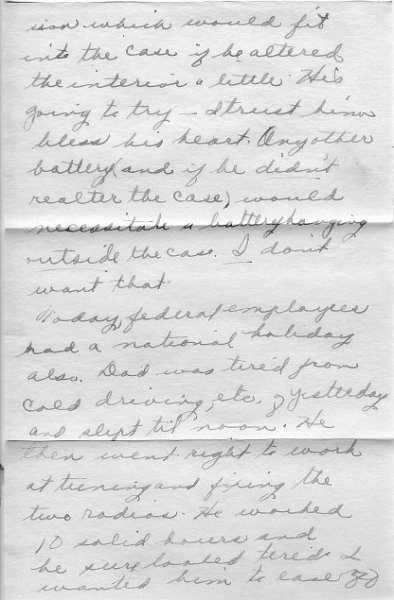 sion which would fit
into the case if he altered
the interior a little. He's
going to try - I trust him
bless his heart. Any other
battery (and if he didn't
realter the case) would
necessitate a battery hanging
outside the case. I don't
want that.
Today, federal employees
had a national holiday
also. Dad was tired from
cold driving, etc. of yesterday
and slept til noon. He
then went right to work
at tuning and fixing the
two radios. He worked
10 solid hours and
he sure looked tired. I
wanted him to ease